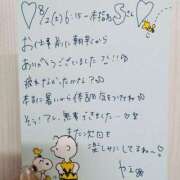 ♡8/2(土)6:15〜本指名Sさん♡
お仕事前に朝早くから
ありがとうございました?!!
疲れてなかったかな?
本当に暑いから体調気をつけてね
そう!アレ、無事できましたー
また次回を
楽しみにしてるねー♡